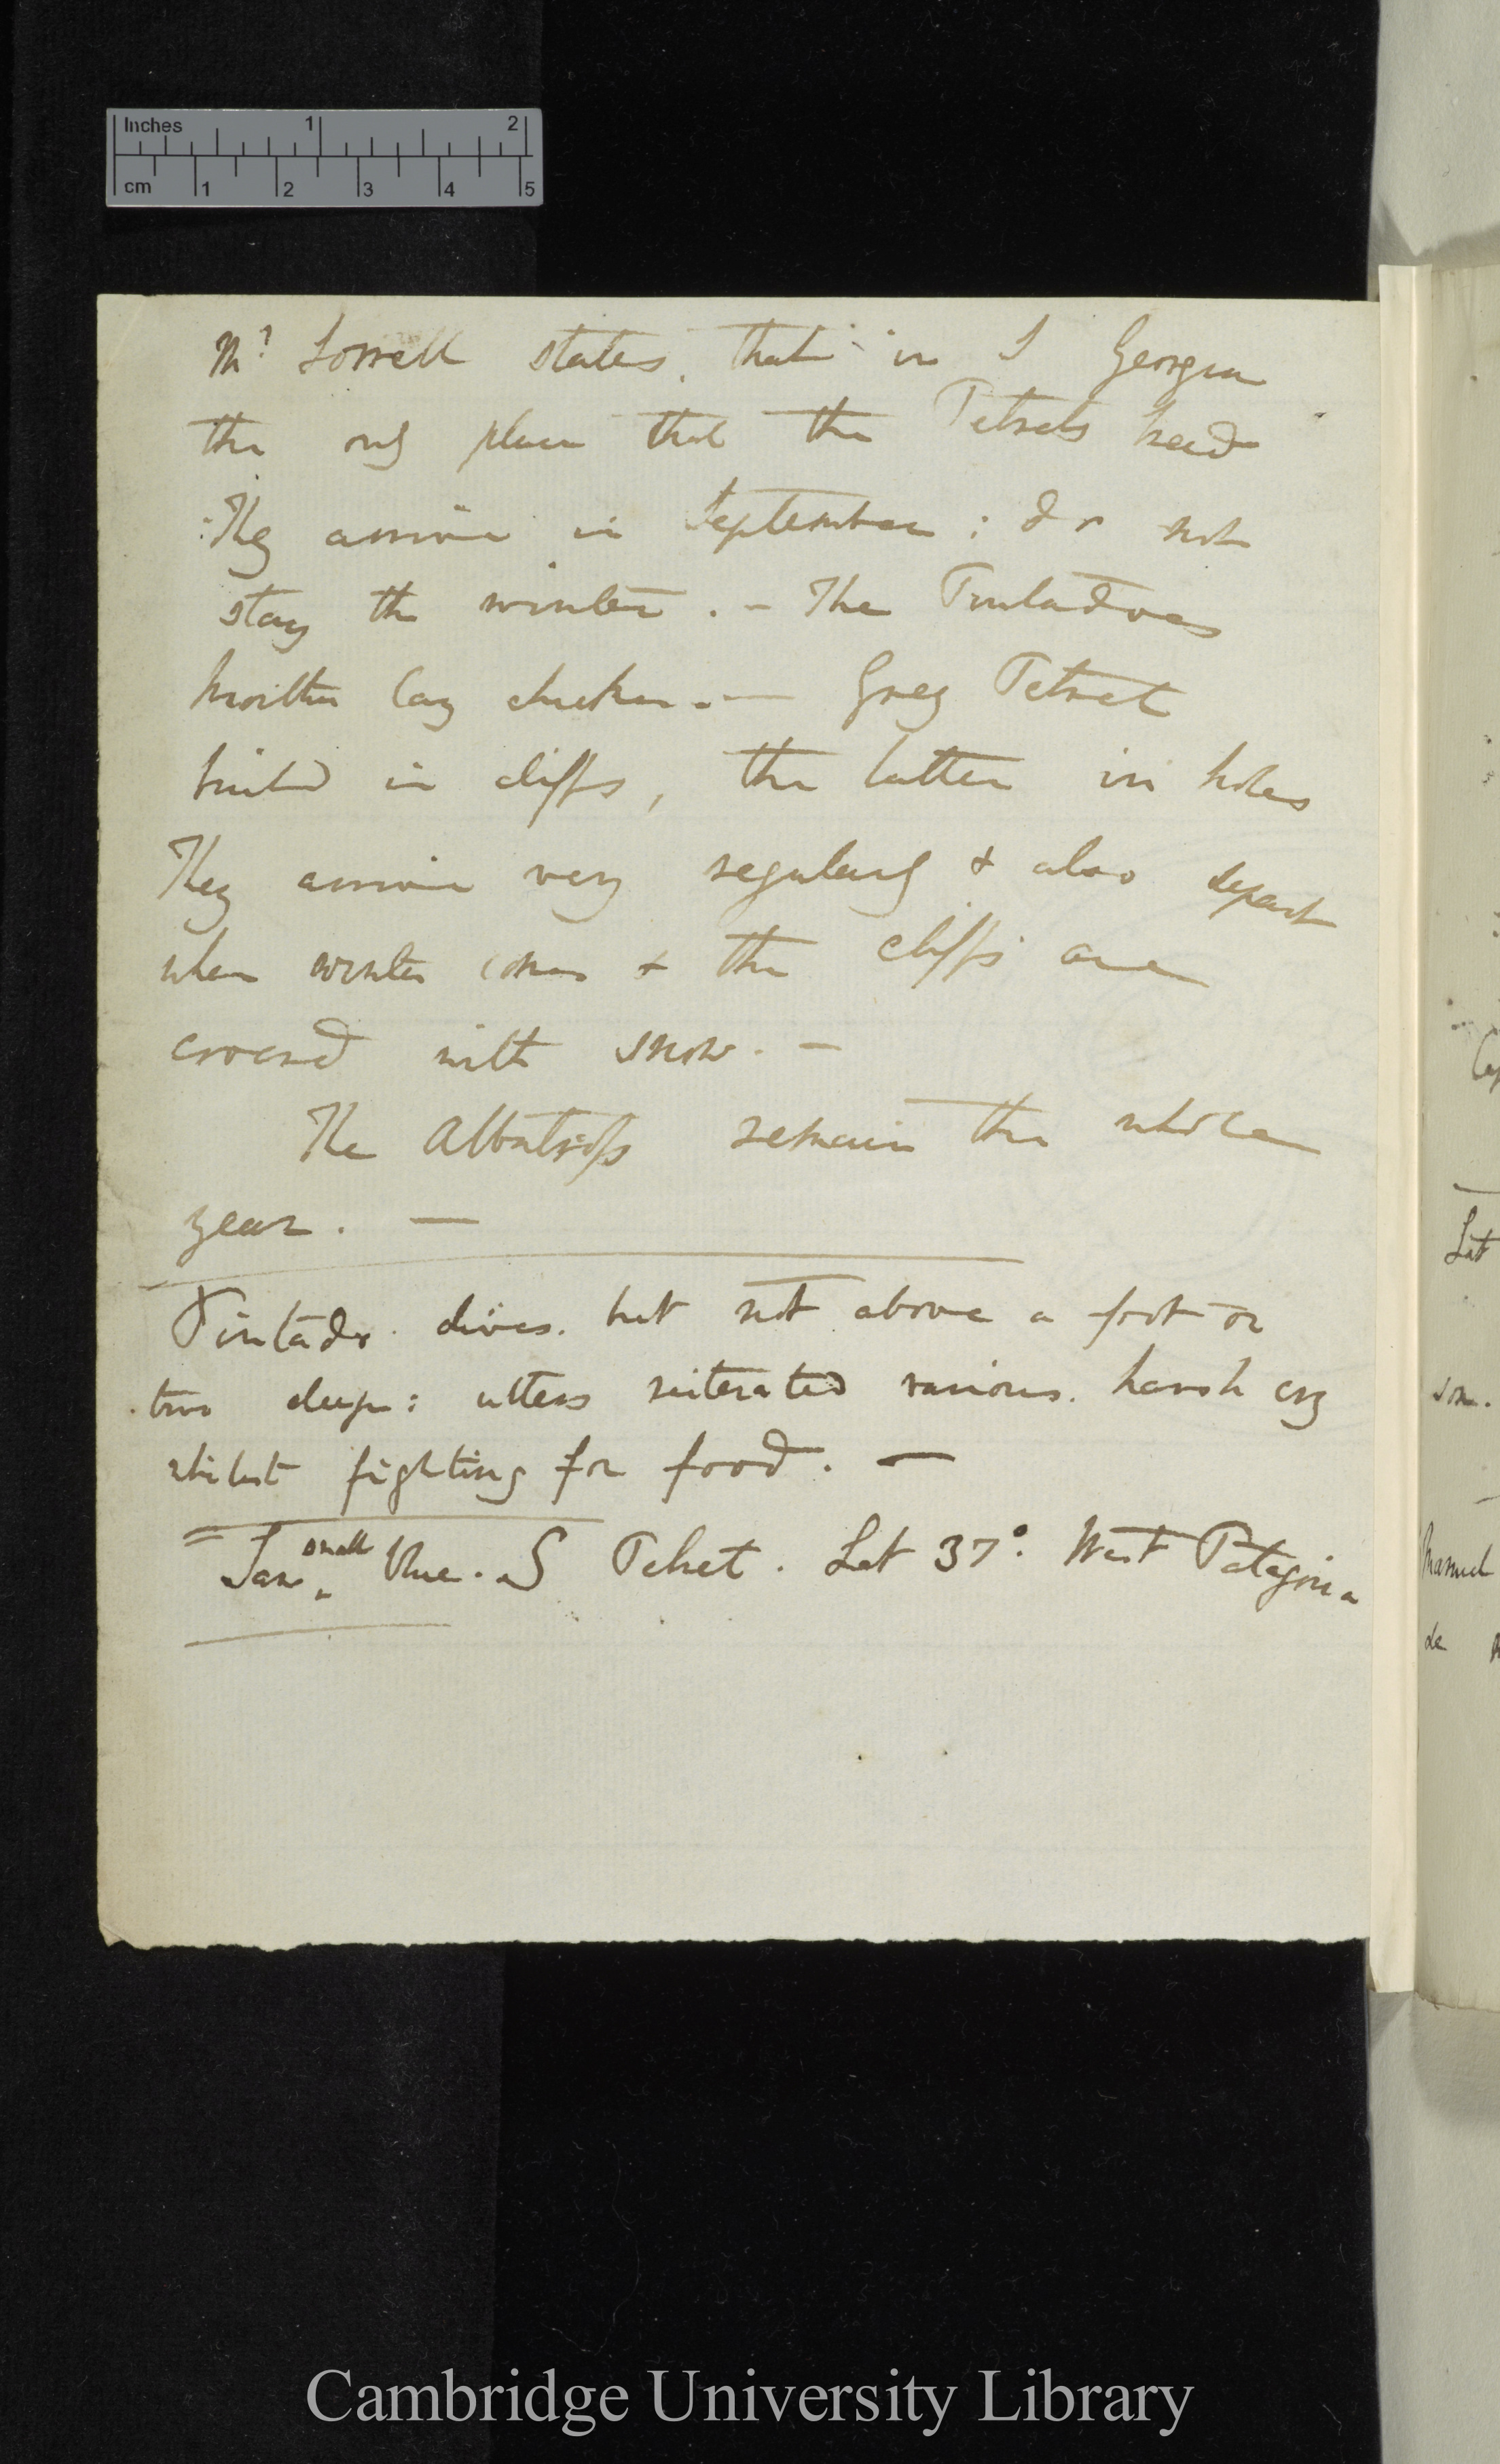 Inches 1 2
cm 1 2 3 4 5
Mr Sorrell states, that in S Georgia
the only place that the Petrels breed
They arrive in September: do not
stay the winter. — The Pintadoes
Mother Cary chicken. — Grey Petrel
build in cliffs, the latter in holes
They arrive very regularly & also depart
when winter comes & the cliffs are
covered with snow. —
The Albatross remain the whole
year. —
Pintado. dives. but not above a foot or
two deep: utters reiterated various. harsh cry
whilst fighting for food. —
Saw small blue. S Petrel. Lat 37°. West Patagonia
Lat
son.
Manuel
de
Cambridge University Library